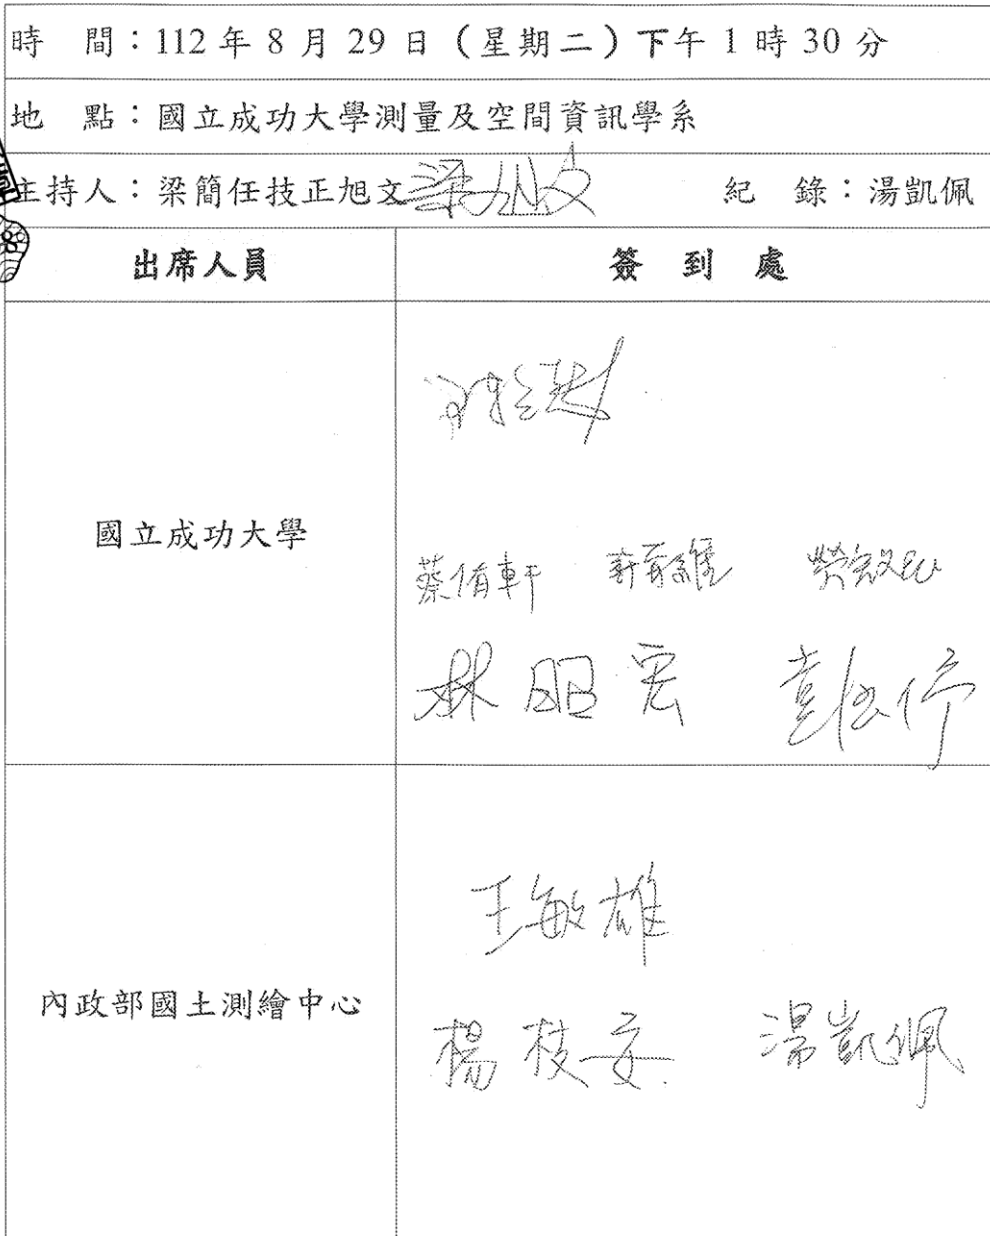 時 間：112 年 8 月 29 日（星期二）下午 1 時 30 分
地 點：國立成功大學測量及空間資訊學系
主持人：梁簡任技正旭文 梁旭文 紀 錄：湯凱佩
出席人員 簽 到 處
國立成功大學
蔡侑軒
林昭宏
內政部國土測繪中心
王敏雄
楊枝安 湯凱佩